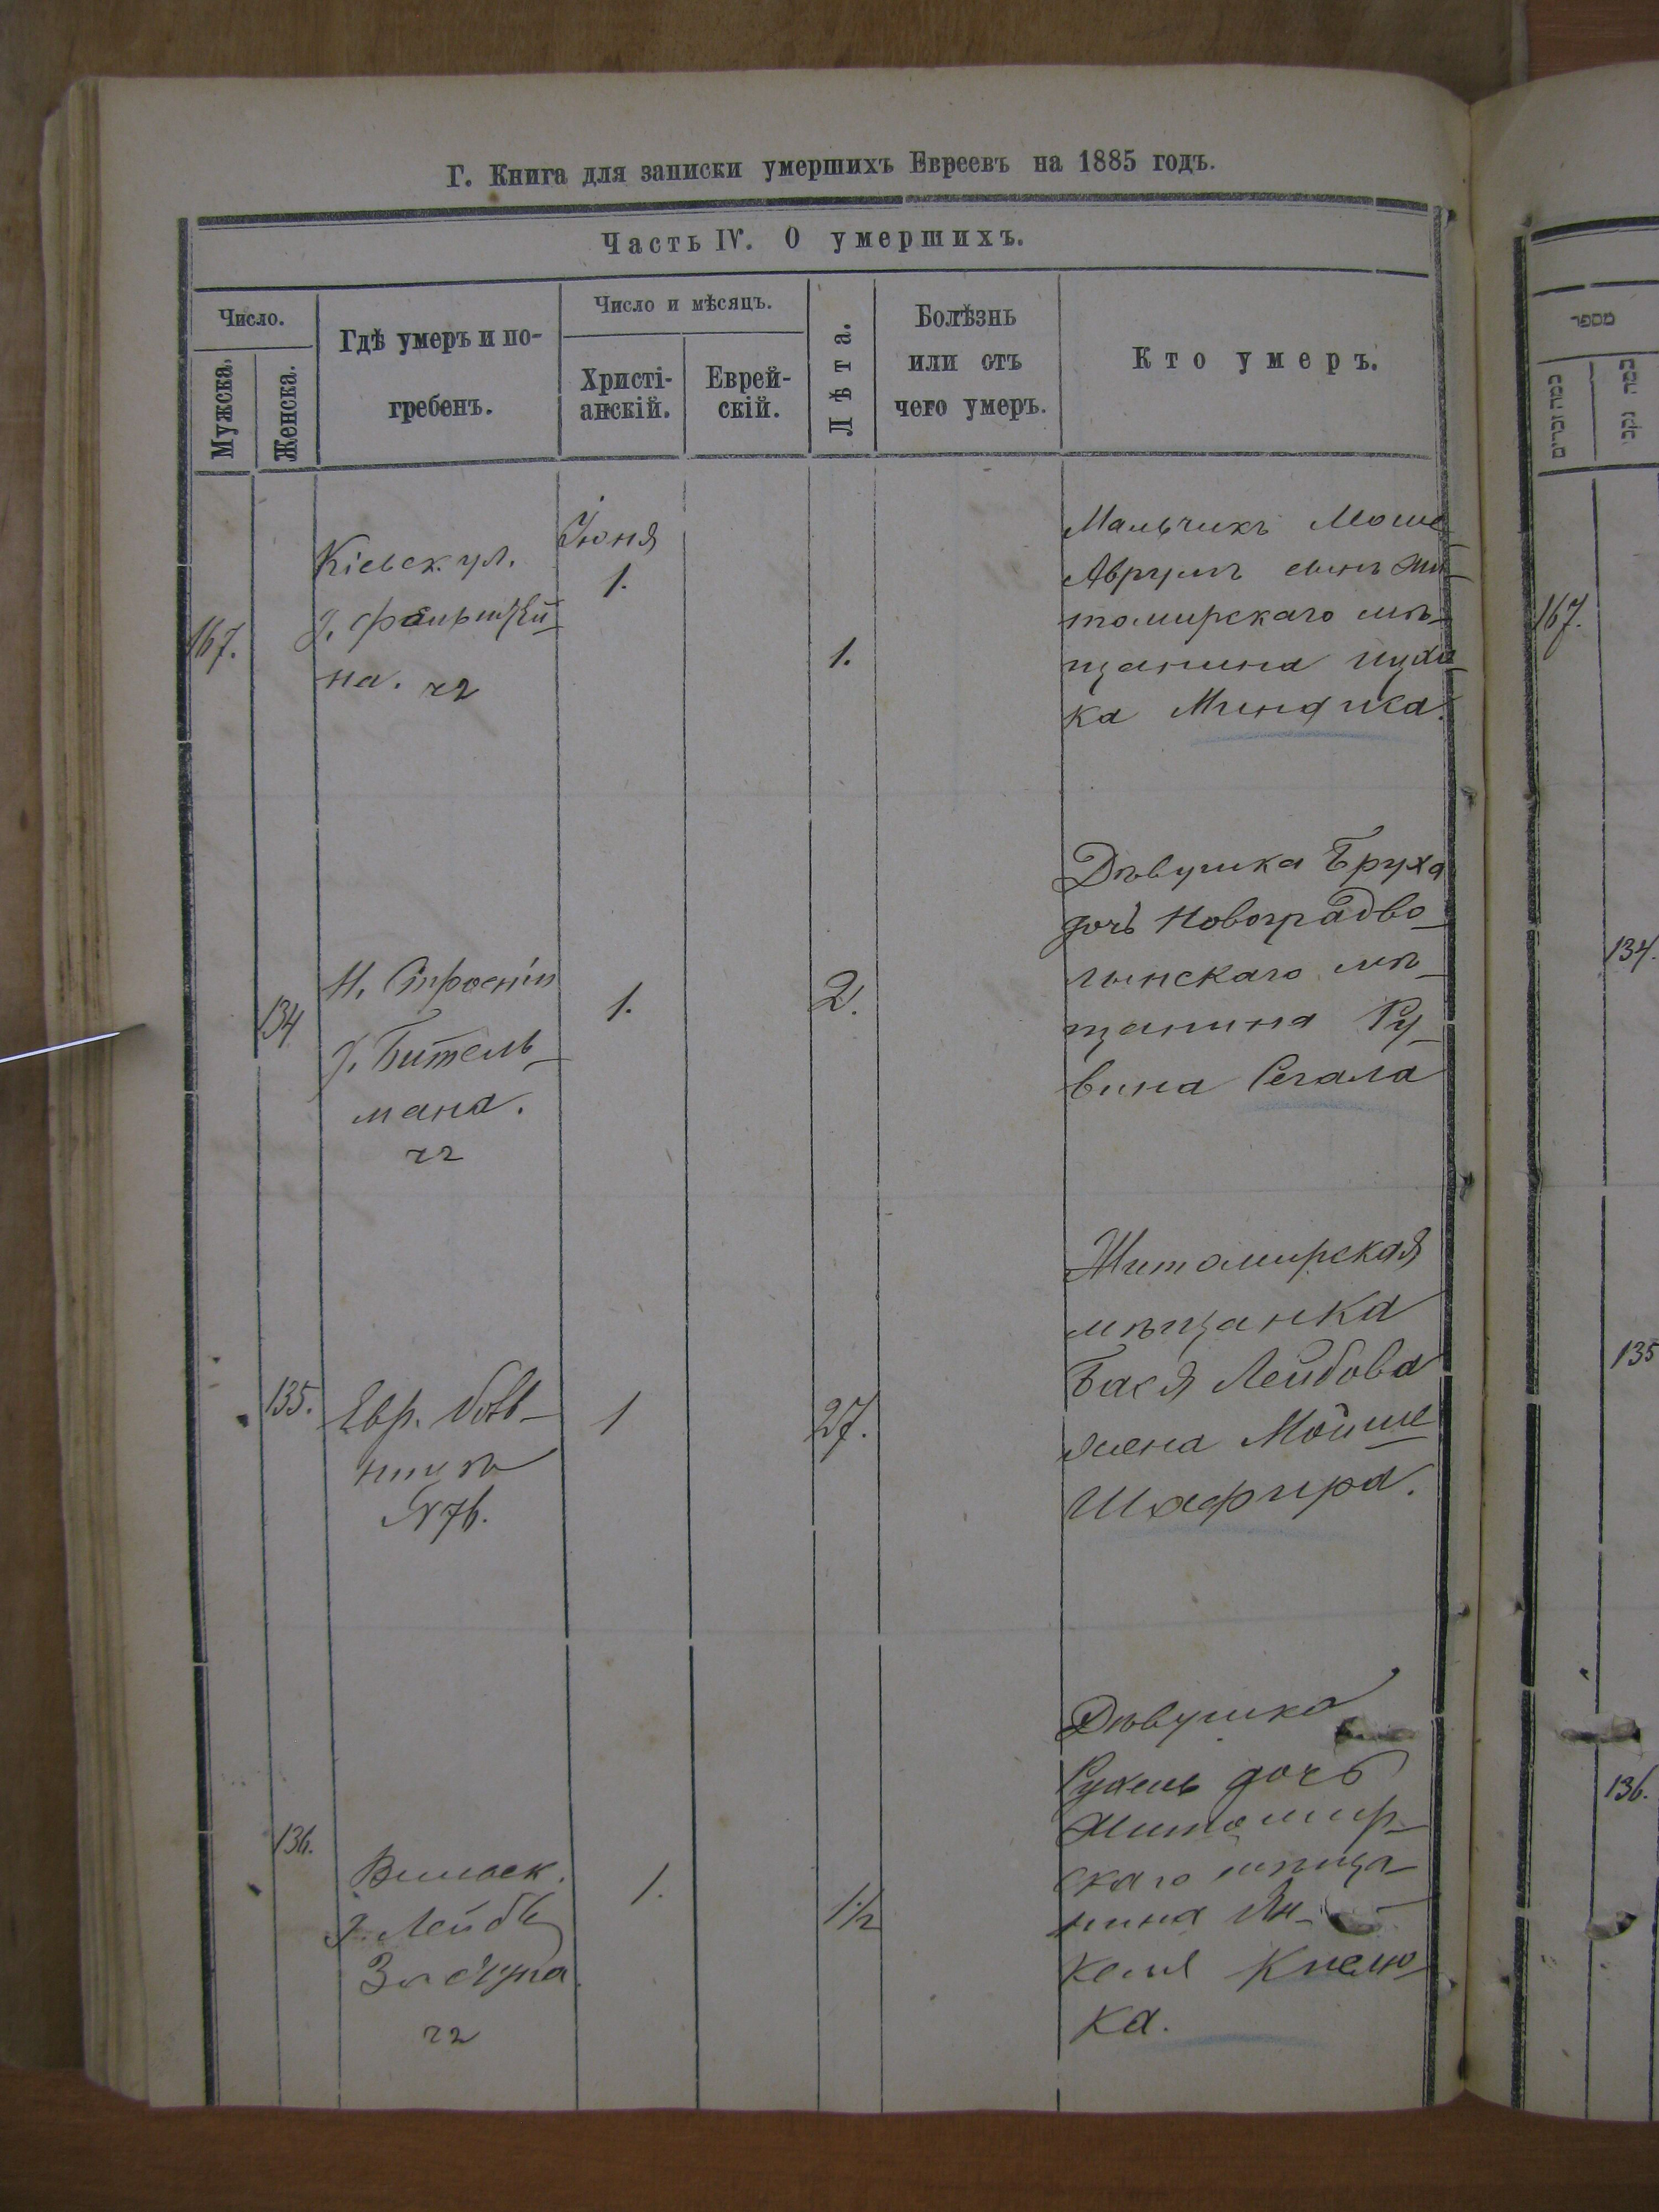 Г. Книга для записки умершихъ Евреевъ на 1885 годъ.
Часть IV. О умершихъ.
Число.
Мужска.
Женска.
Гдѣ умеръ и по-
гребенъ.
Число и мѣсяцъ.
Христі-
анскій.
Еврей-
скій.
Лѣта.
Болѣзнь
или отъ
чего умеръ.
Кто умеръ.
167.
Кіевск. ул.
на.
Іюня
1.
1.
Мальчикъ Моше
Аврумъ сынъ Жи-
томирскаго мѣ-
щанина Ицхо-
ка Миндика.
134
Н. Строенія
д. Битель-
мана.
1.
2.
Дѣвушка Бруха
дочь Новоградво-
лынскаго мѣ-
щанина Ру-
вина Сегала
135.
Евр. боль-
ница
№ 76.
1
27.
Житомирская
мѣщанка
Бася Лейбова
жена Мойше
Шафира.
136.
Вильск.
д. Лейбы
1.
1 1/2
Дѣвушка
Рухель дочь
Житомир-
скаго мѣща-
нина Ян-
келя Кнелю-
ка.
מספר
167.
134.
135
136.